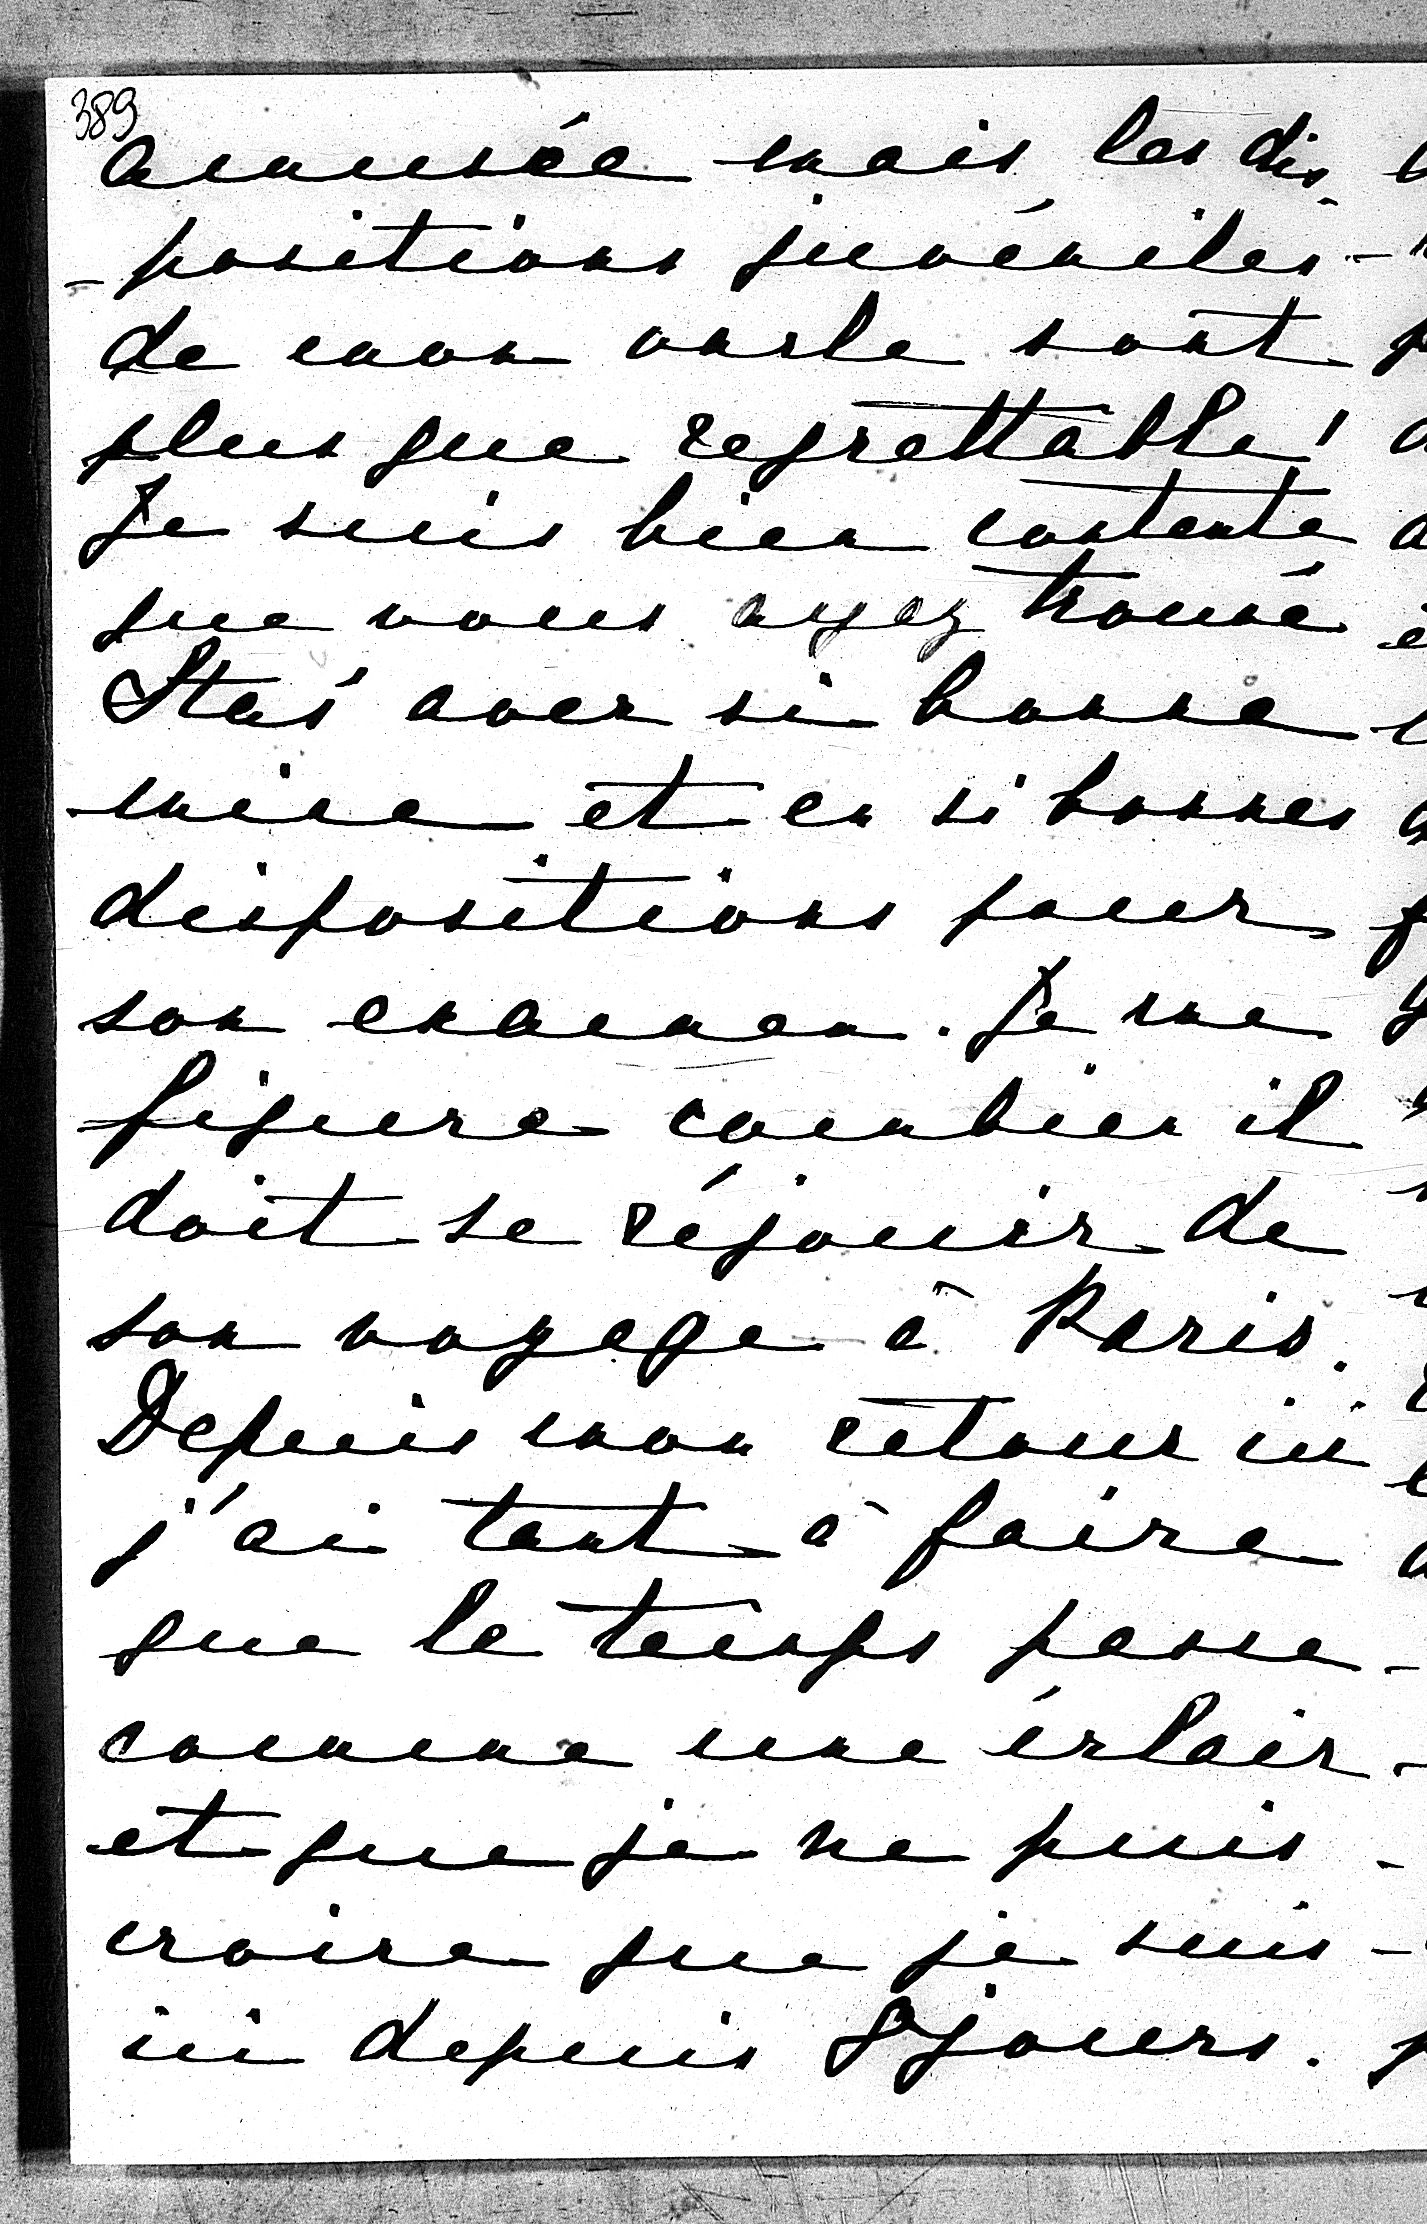 389
amusée mais les dis
-positions juvéniles
de mon oncle sont
plus que regrettable!
Je suis bien contente
que vous ayez trouvé
Staś avec si bonne
mine et en si bonnes
dispositions pour
son examen. Je me
figure combien il
doit se réjouir de
son voyage à Paris.
Depuis mon retour ici
j'ai tant à faire
que le temps passe
comme une éclair
et que je ne puis
croire que je suis
ici depuis 8 jours.